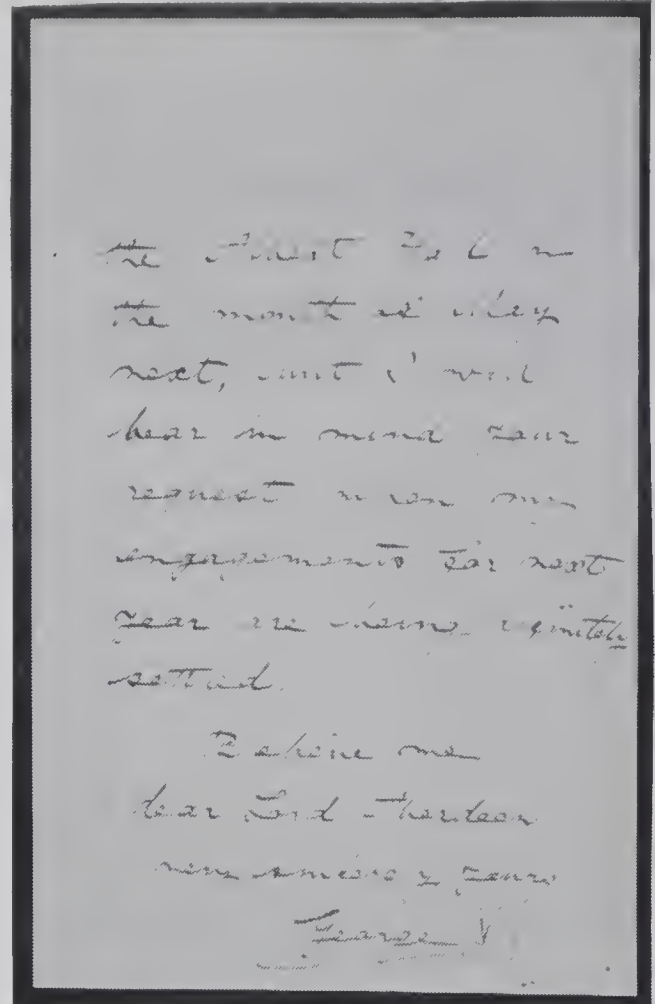 the
the month of May
next, and I will
bear in mind your
request when my
engagements for next
year are being definitely
settled.
Believe me
dear Lord Aberdeen
very sincerely yours
George